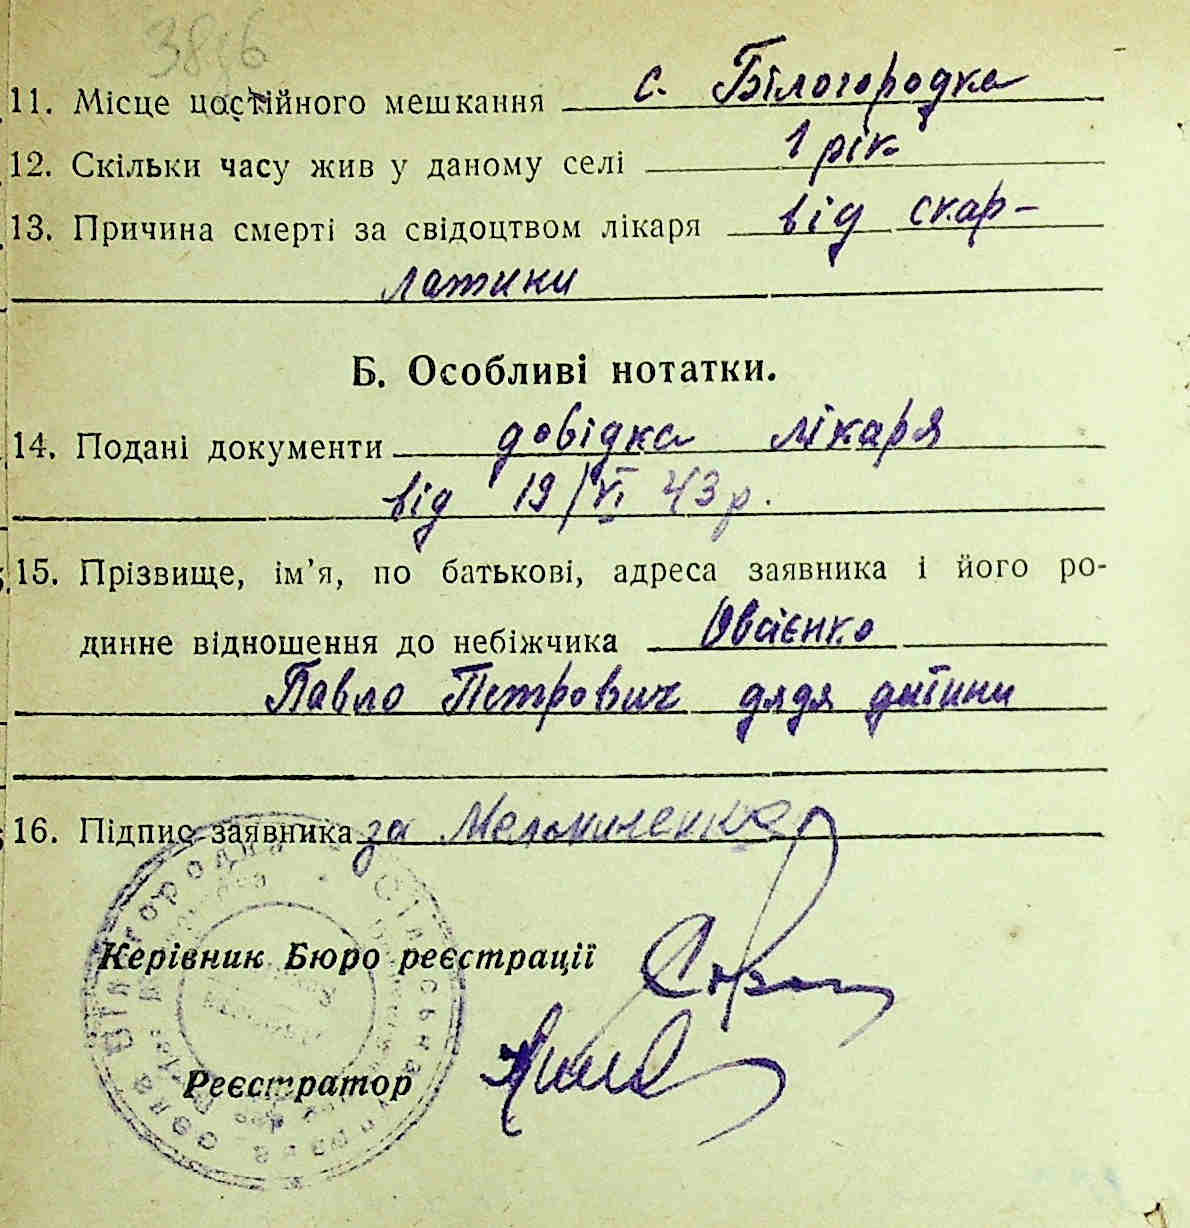 38 6
11. Місце постійного мешкання с. Білогородка
12. Скільки часу жив у даному селі 1 рік
13. Причина смерті за свідоцтвом лікаря від скар-
латини
Б. Особливі нотатки.
14. Подані документи довідка лікаря
від 19/VI 43 р.
15. Прізвище, ім’я, по батькові, адреса заявника і його ро-
динне відношення до небіжчика
Павло Петрович дядя дитини
16. Підпис заявника за
Керівник Бюро реєстрації
Реєстратор